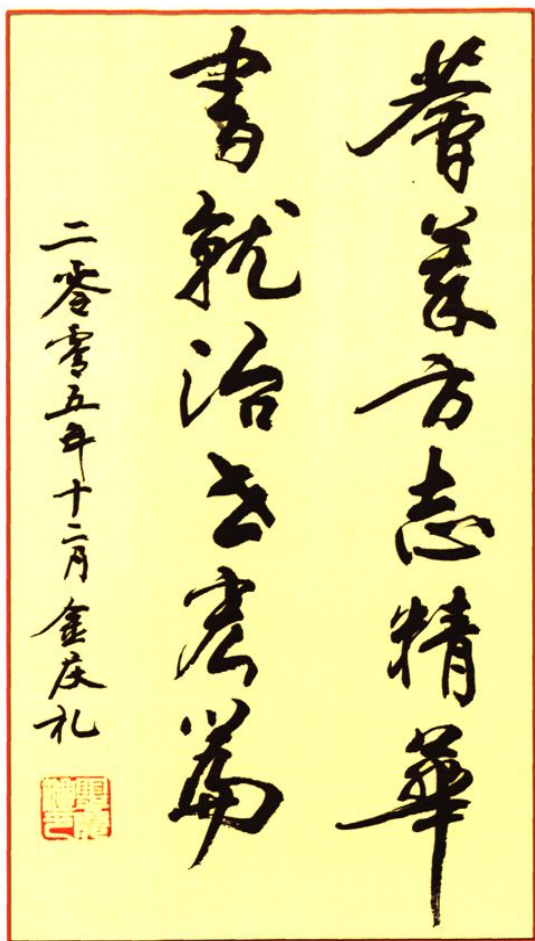 薈萃方志精華
書就治世宏篇
二零零五年十二月 金庆礼